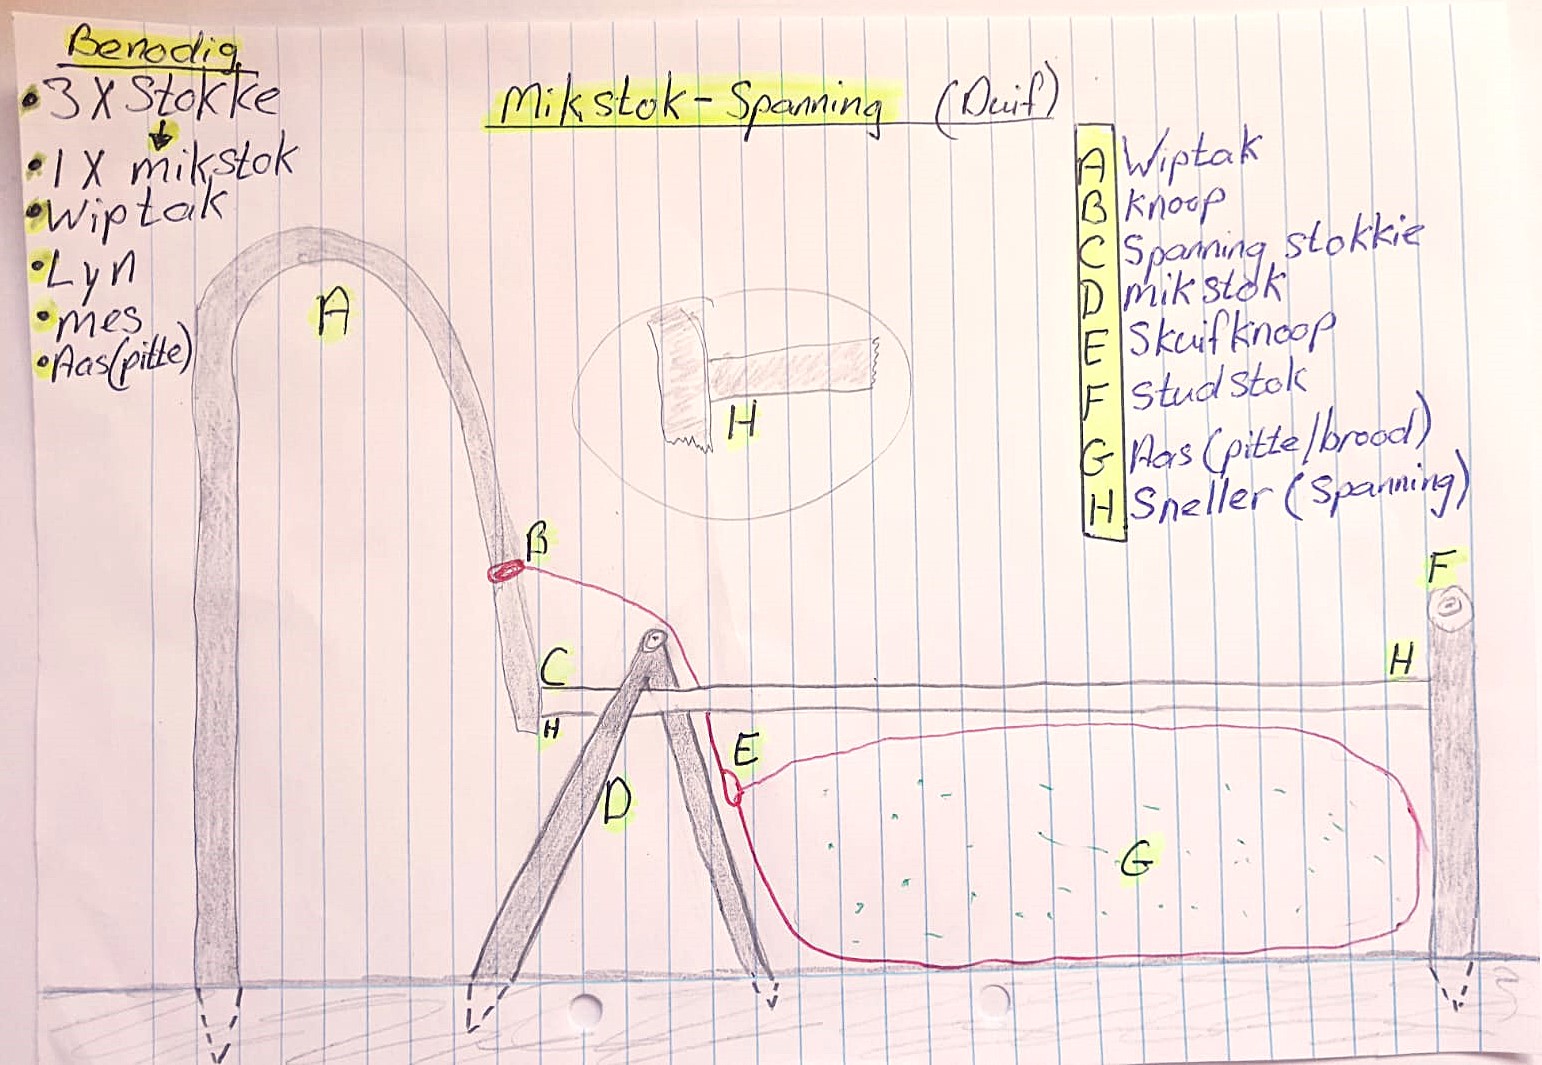 Benodig
• 3 X Stokke
• 1 X mikstok
• Wiptak
• Lyn
• mes
• Aas(pitte)
Mikstok - Spanning (Duif)
A Wiptak
B knoop
C Spanning stokkie
D mikstok
E Skuifknoop
F Studstok
G Aas (pitte/brood)
H Sneller (Spanning)
A
H
B
F
C
H
H
E
D
G